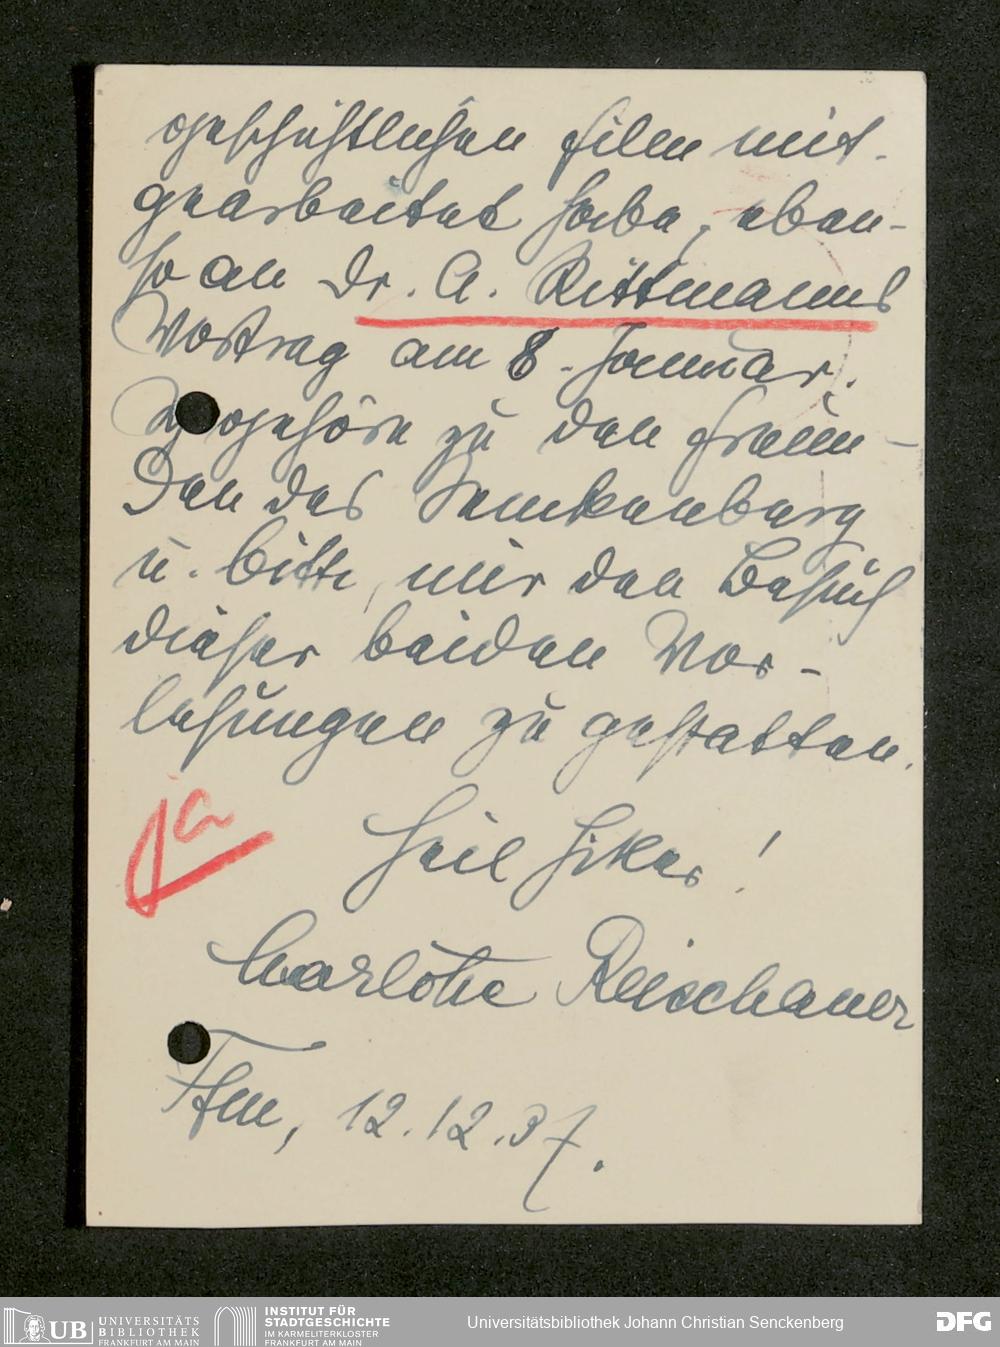 geschichtlichen Film mit-
gearbeitet habe, eben-
so an Dr. A. Rittmanns
Vortrag am 8. Januar.
Ich gehöre zu den Freun-
den des Senckenberg
u. bitte, mir den Besuch
dieser beiden Vor-
lesungen zu gestatten.
ja
Heil Hitler!
Charlotte Reischauer
Ffm, 12.12.37.
UB UNIVERSITÄTS
BIBLIOTHEK
FRANKFURT AM MAIN
INSTITUT FÜR
STADTGESCHICHTE
IM KARMELITERKLOSTER
FRANKFURT AM MAIN
Universitätsbibliothek Johann Christian Senckenberg
DFG